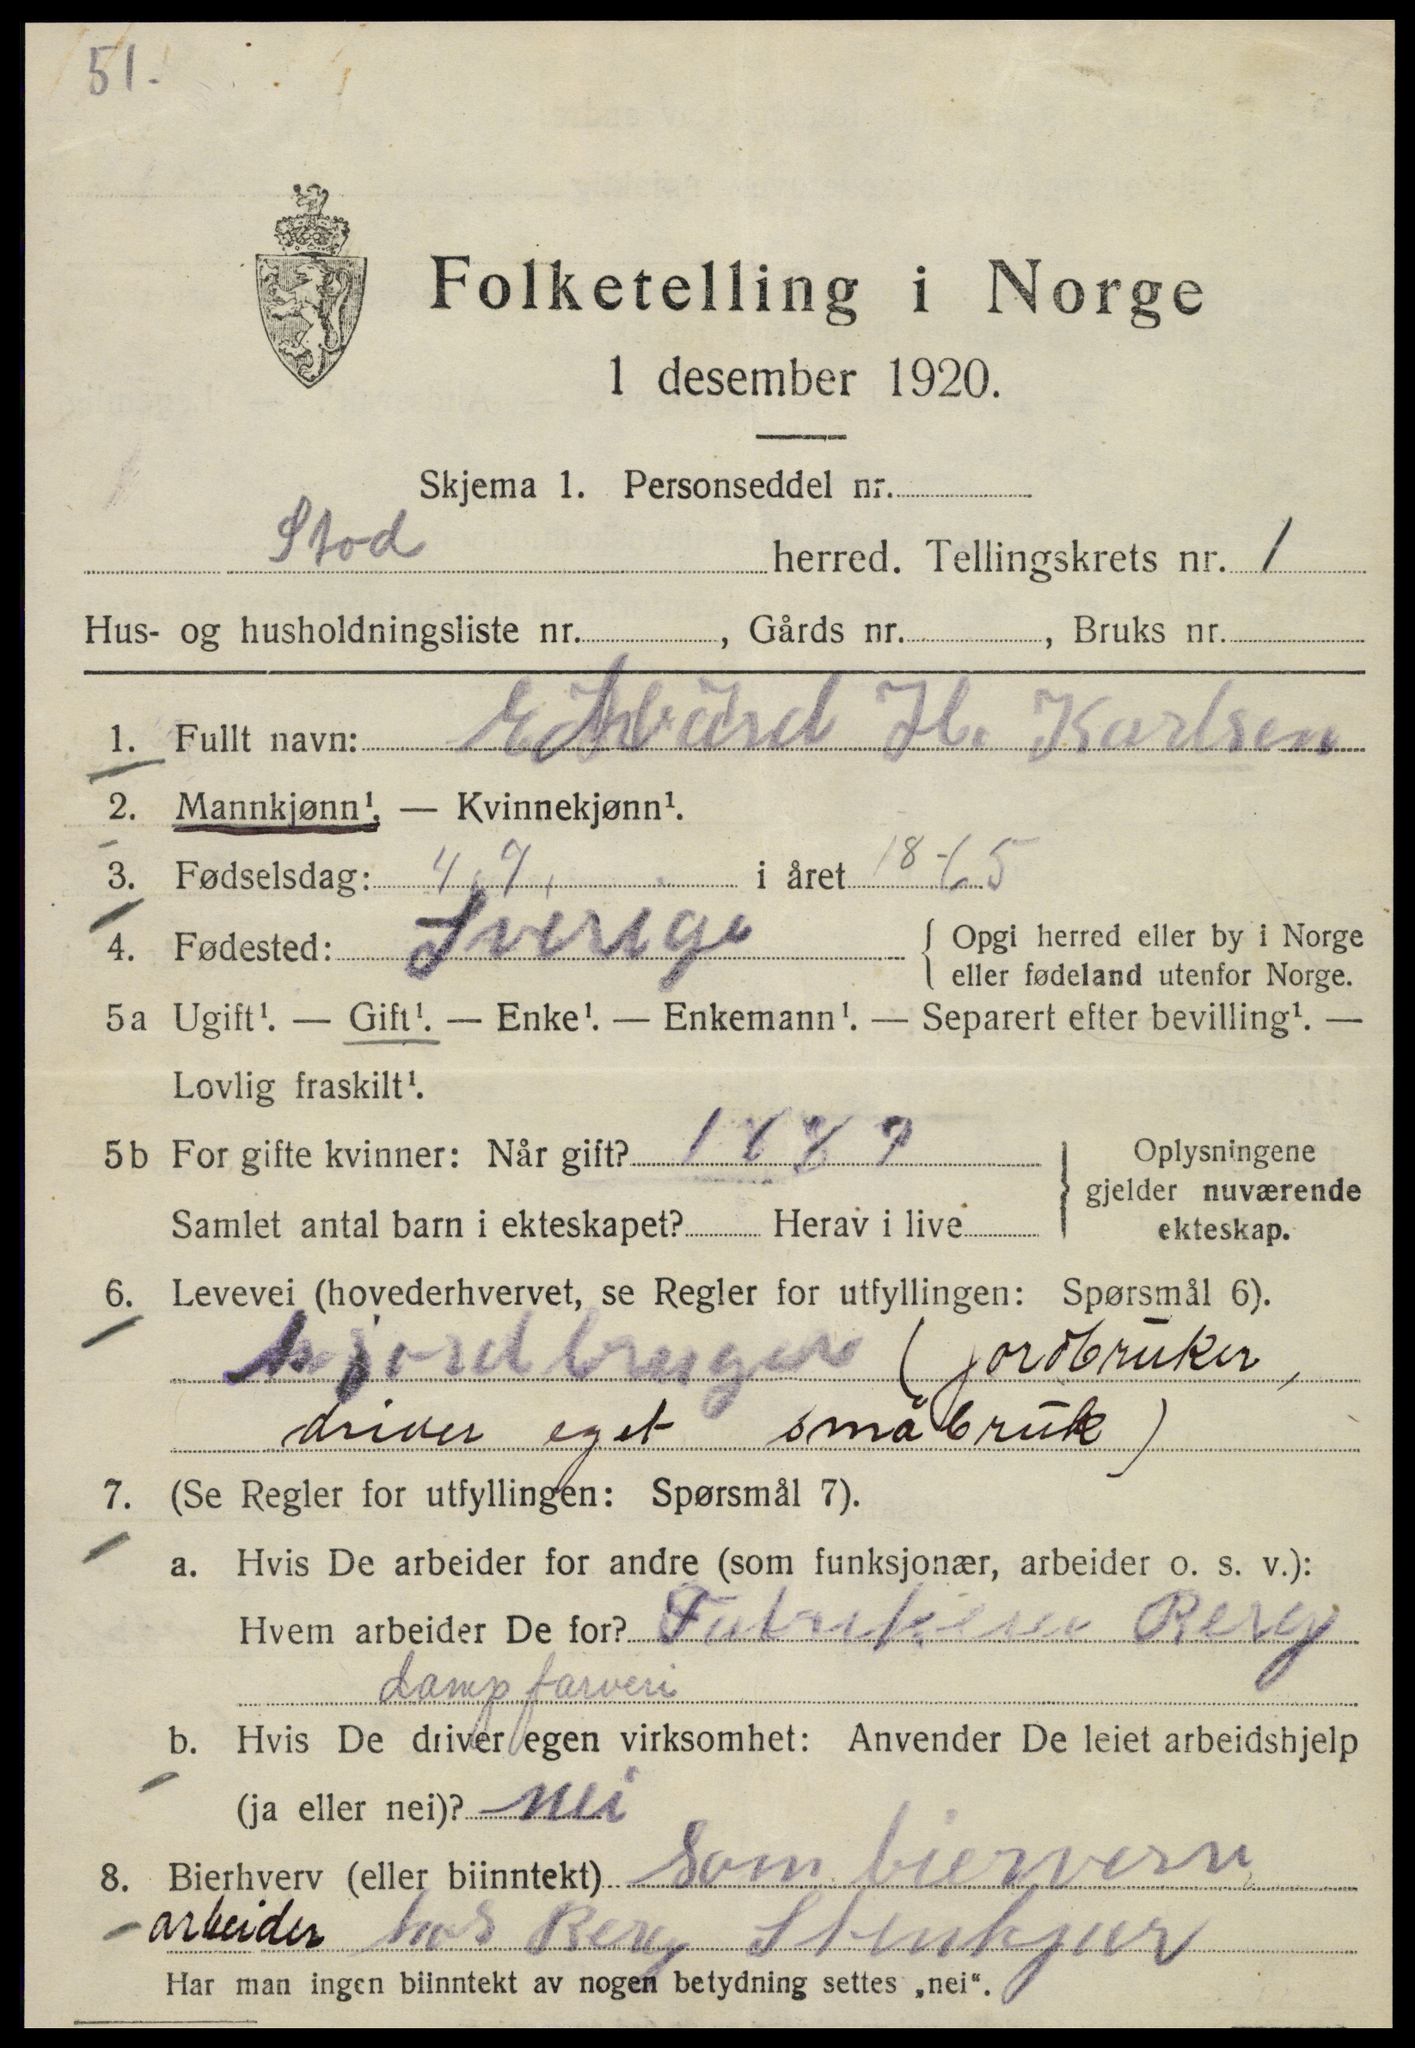 51.
Folketelling i Norge
1 desember 1920.
Skjema 1. Personseddel nr.
Stod herred. Tellingskrets nr. 1
Hus- og husholdningsliste nr. , Gårds nr. , Bruks nr.
1. Fullt navn: H. Karlsen
2. Mannkjønn¹. — Kvinnekjønn¹.
3. Fødselsdag: 4. 7. i året 1865
4. Fødested: Sverige { Opgi herred eller by i Norge
eller fødeland utenfor Norge.
5a Ugift¹. — Gift¹. — Enke¹. — Enkemann¹. — Separert efter bevilling¹. —
Lovlig fraskilt¹.
5b For gifte kvinner: Når gift? 1889 } Oplysningene
gjelder nuværende
Samlet antal barn i ekteskapet? Herav i live ekteskap.
6. Levevei (hovederhvervet, se Regler for utfyllingen: Spørsmål 6).
jordbruger (jordbruker,
driver eget småbruk)
7. (Se Regler for utfyllingen: Spørsmål 7).
a. Hvis De arbeider for andre (som funksjonær, arbeider o. s. v.):
Hvem arbeider De for? Berg
Dampfarveri
b. Hvis De driver egen virksomhet: Anvender De leiet arbeidshjelp
(ja eller nei)? nei
8. Bierhverv (eller biinntekt) som bierverv
arbeider hos Berg Stenkjær
Har man ingen biinntekt av nogen betydning settes „nei“.